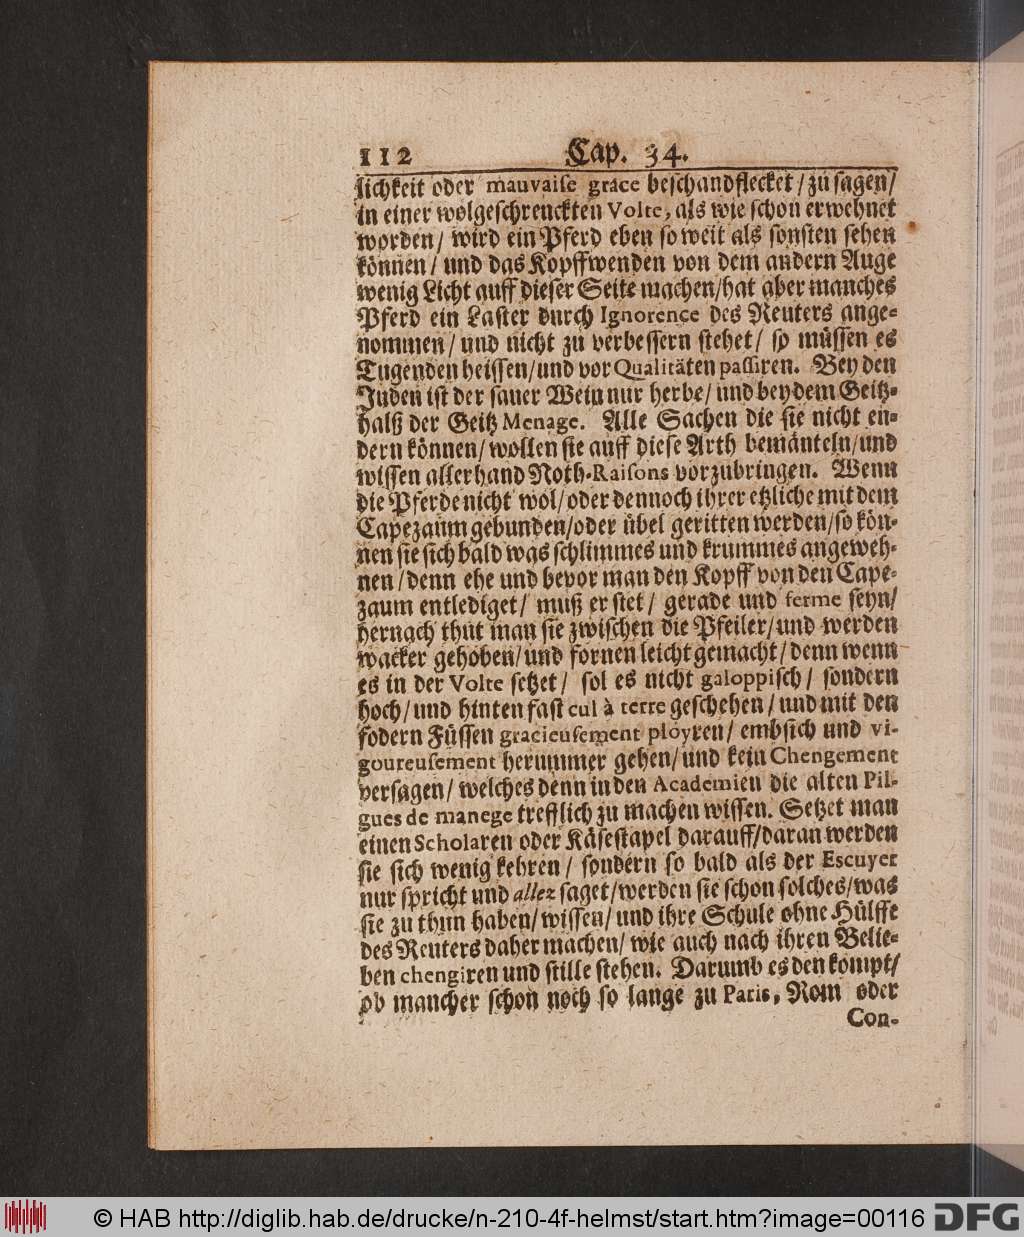 112 Cap. 34.
lichkeit oder mauvaise grace beschandflecket/ zu sagen/
in einer wolgeschrenckten Volte, als wie schon erwehnet
worden/ wird ein Pferd eben so weit als sonsten sehen
können/ und das Kopffwenden von dem andern Auge
wenig Licht auff dieser Seite machen/ hat aber manches
Pferd ein Laster durch Ignorence des Reuters ange-
nommen/ und nicht zu verbessern stehet/ so müssen es
Tugenden heissen/ und vor Qualitäten passiren. Bey den
Juden ist der sauer Wein nur herbe/ und bey dem Geitz-
halß der Geitz Menage. Alle Sachen die sie nicht en-
dern können/ wollen sie auff diese Arth bemänteln/ und
wissen allerhand Noth-Raisons vorzubringen. Wenn
die Pferde nicht wol/ oder dennoch ihrer etzliche mit dem
Capezaum gebunden/ oder übel geritten werden/ so kön-
nen sie sich bald was schlimmes und krummes angeweh-
nen/ denn ehe und bevor man den Kopff von den Cape-
zaum entlediget/ muß er stet/ gerade und ferme seyn/
hernach thut man sie zwischen die Pfeiler/ und werden
wacker gehoben/ und fornen leicht gemacht/ denn wenn
es in der Volte setzet/ sol es nicht galoppisch/ sondern
hoch/ und hinten fast cul à terre geschehen/ und mit den
fodern Füssen gracieusement ployren/ embsich und vi-
goureusement herummer gehen/ und kein Chengement
versagen/ welches denn in den Academien die alten Pil-
gues de manege trefflich zu machen wissen. Setzet man
einen Scholaren oder Käsestapel darauff/ daran werden
sie sich wenig kehren/ sondern so bald als der Escuyer
nur spricht und allez saget/ werden sie schon solches/ was
sie zu thun haben/ wissen/ und ihre Schule ohne Hülffe
des Reuters daher machen/ wie auch nach ihren Belie-
ben chengiren und stille stehen. Darumb es den kompt/
ob mancher schon noch so lange zu Paris, Rom oder
Con-
© HAB http://diglib.hab.de/drucke/n-210-4f-helmst/start.htm?image=00116 DFG